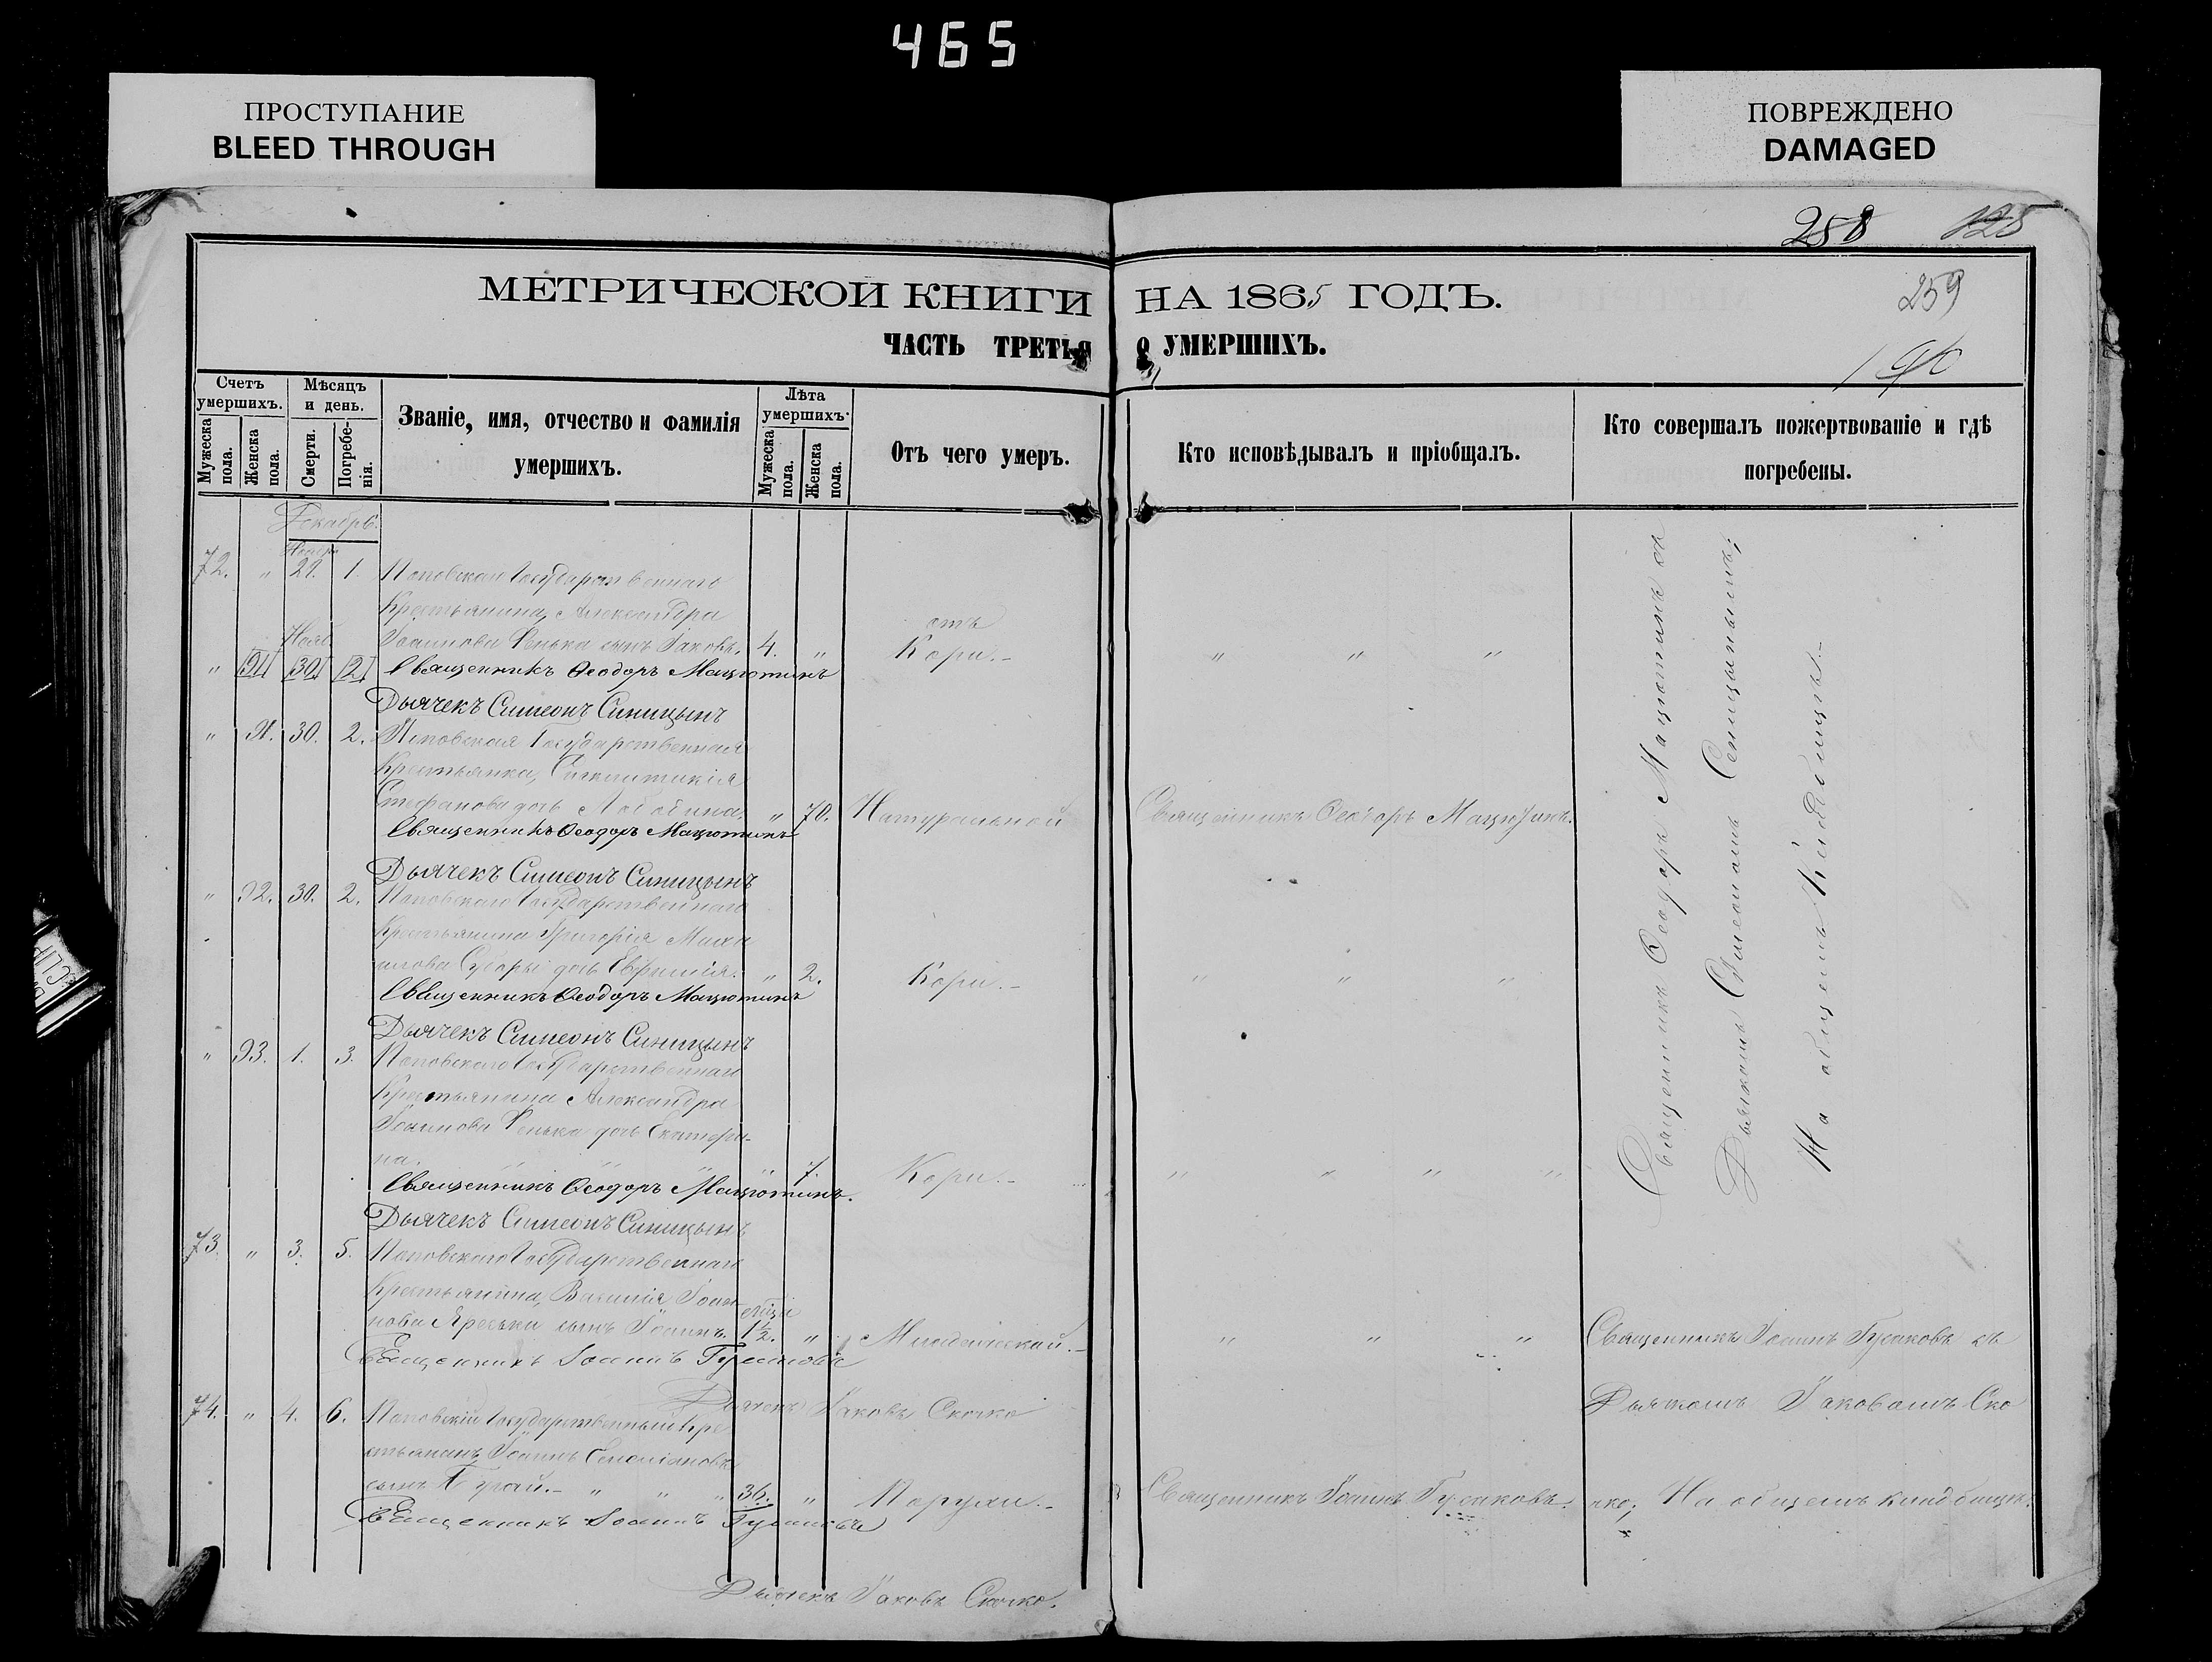 465
ПРОСТУПАНИЕ
BLEED THROUGH
ПОВРЕЖДЕНО
DAMAGED
258 125
259
МЕТРИЧЕСКОЙ КНИГИ НА 1865 ГОДЪ.
ЧАСТЬ ТРЕТЬЯ О УМЕРШИХЪ.
Счетъ умершихъ.
Мужеска пола.
Женска пола.
Мѣсяцъ и день.
Смерти.
Погребенія.
Званіе, имя, отчество и фамилія
умершихъ.
Лѣта умершихъ.
Мужеска пола.
Женска пола.
Отъ чего умеръ.
Кто исповѣдывалъ и пріобщалъ.
Кто совершалъ пожертвованіе и гдѣ
погребены.
Декабрь.
Ноября
72. " 29. 1. Поповскаго Государственнаго
Крестьянина, Александра
Іоаннова сынъ Іаковъ. 4. " отъ Кори.-
Нояб.
" 91 30 2 Священникъ Ѳеодоръ Мацютинъ
Дьячекъ Симеонъ Синицынъ
" 91. 30. 2. Поповская Государственная
Крестьянка, Синклитикія
Стефанова дочь " 70. Натуральной Священникъ Ѳеодоръ Мацютинъ.
Священникъ Ѳеодоръ Мацютинъ
Дьячекъ Симеонъ Синицынъ
" 92. 30. 2. Поповскаго Государственнаго
Крестьянина Григорія Михаи
лова дочь Евфимія. " 2. Кори.-
Священникъ Ѳеодоръ Мацютинъ
Дьячекъ Симеонъ Синицынъ
" 93. 1. 3. Поповскаго Государственнаго
Крестьянина Александра
Іоаннова дочь Екатери-
на. " " " " 7. Кори.-
Священникъ Ѳеодоръ Мацютинъ.
Дьячекъ Симеонъ Синицынъ
73. " 3. 5. Поповскаго Государственнаго
Крестьянина, Василія Іоан-
нова Яреська сынъ Іоаннъ. 1½. " Младенческой.-
Священникъ Іоаннъ Гусаковъ
Дьячекъ Іаковъ Скочко
74. " 4. 6. Поповскій Государственный Кре
стьянинъ, Іоаннъ
сынъ " " " 36. " Священникъ Іоаннъ Гусаковъ.
Священникъ Іоаннъ Гусаковъ
Дьячекъ Іаковъ Скочко.
Священникъ Ѳеодоръ Мацютинъ съ
Дьячкомъ Симеономъ Синицынымъ;
На общемъ Кладбищѣ.-
Священникъ Іоаннъ Гусаковъ съ
Дьячкомъ Іаковомъ Ско
чко; На общемъ кладбищѣ.